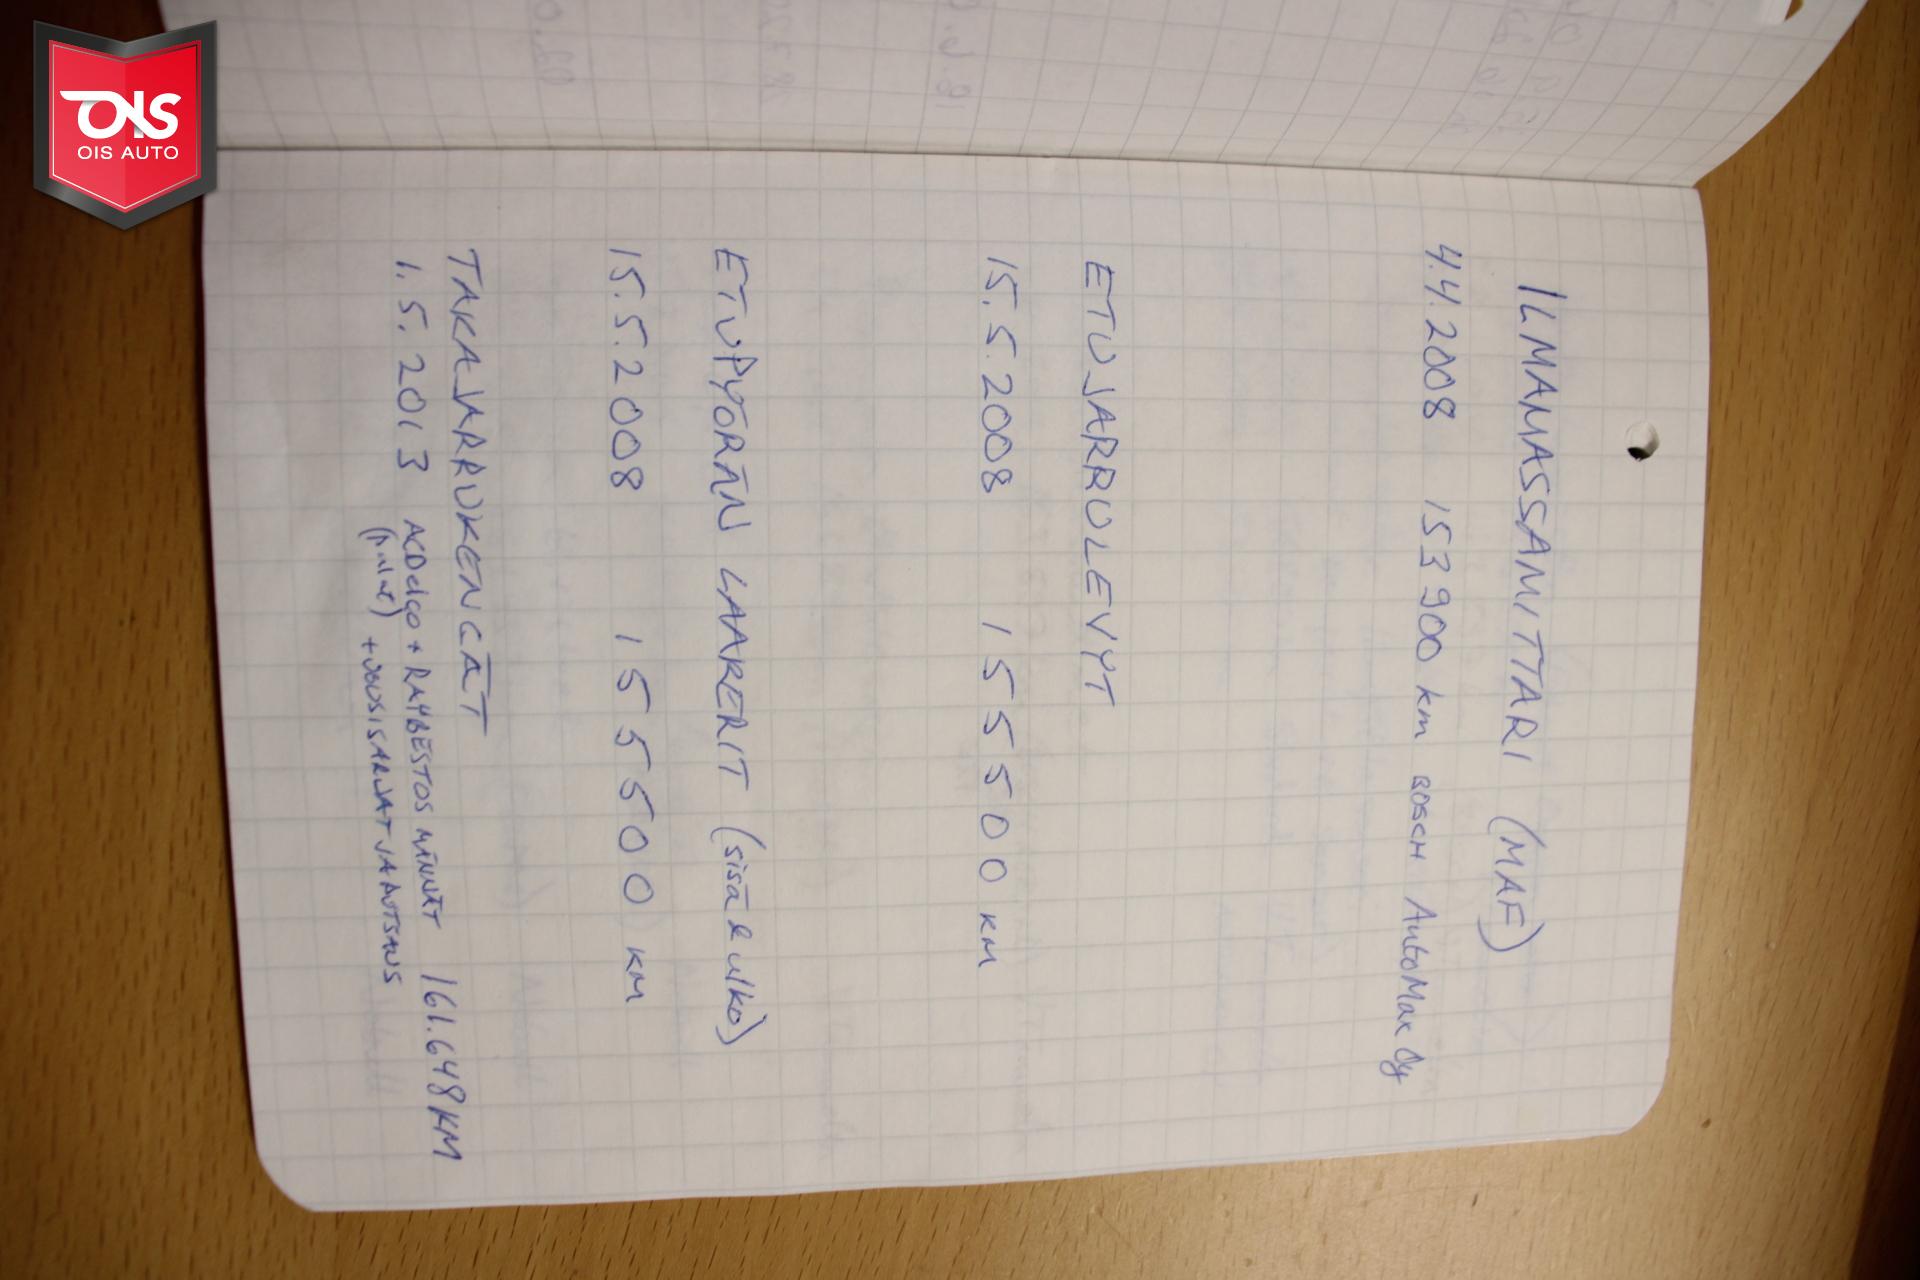 OIS
OIS AUTO
ILMAMASSAMITTARI (MAF)
4.4.2008 153 900 km BOSCH AutoMax Oy
ETUJARRULEVYT
15.5.2008 155500 KM
ETUPYÖRÄN LAAKERIT (sisä & ulko)
15.5.2008 155500 KM
TAKAJARRUKENGÄT
1.5.2013 ACDelco + RAYBESTOS MÄNNÄT 161.648 KM
+ JOUSISARJAT JA AUTSAUS